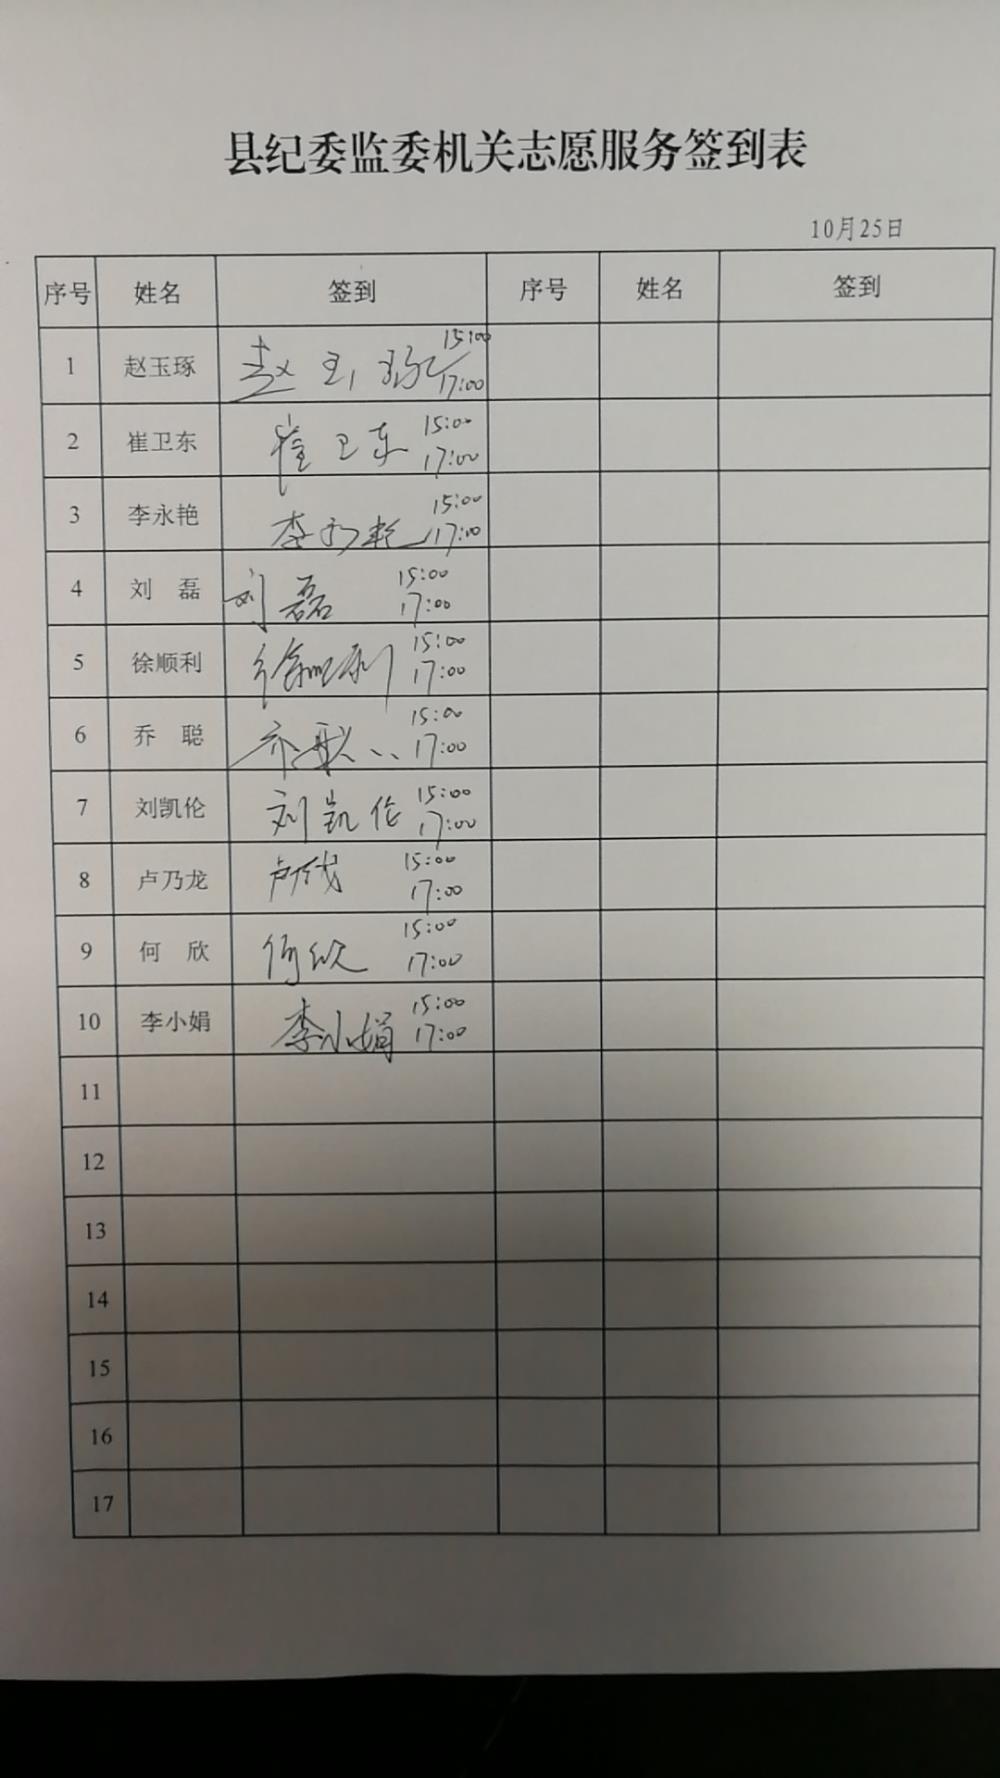 县纪委监委机关志愿服务签到表
10月25日
序号 姓名 签到 序号 姓名 签到
1 赵玉琢 赵玉琢 15:00 17:00
2 崔卫东 崔卫东 15:00 17:00
3 李永艳 李永艳 15:00 17:00
4 刘 磊 刘磊 15:00 17:00
5 徐顺利 徐顺利 15:00 17:00
6 乔 聪 乔聪 15:00 17:00
7 刘凯伦 刘凯伦 15:00 17:00
8 卢乃龙 卢乃龙 15:00 17:00
9 何 欣 何欣 15:00 17:00
10 李小娟 李小娟 15:00 17:00
11
12
13
14
15
16
17